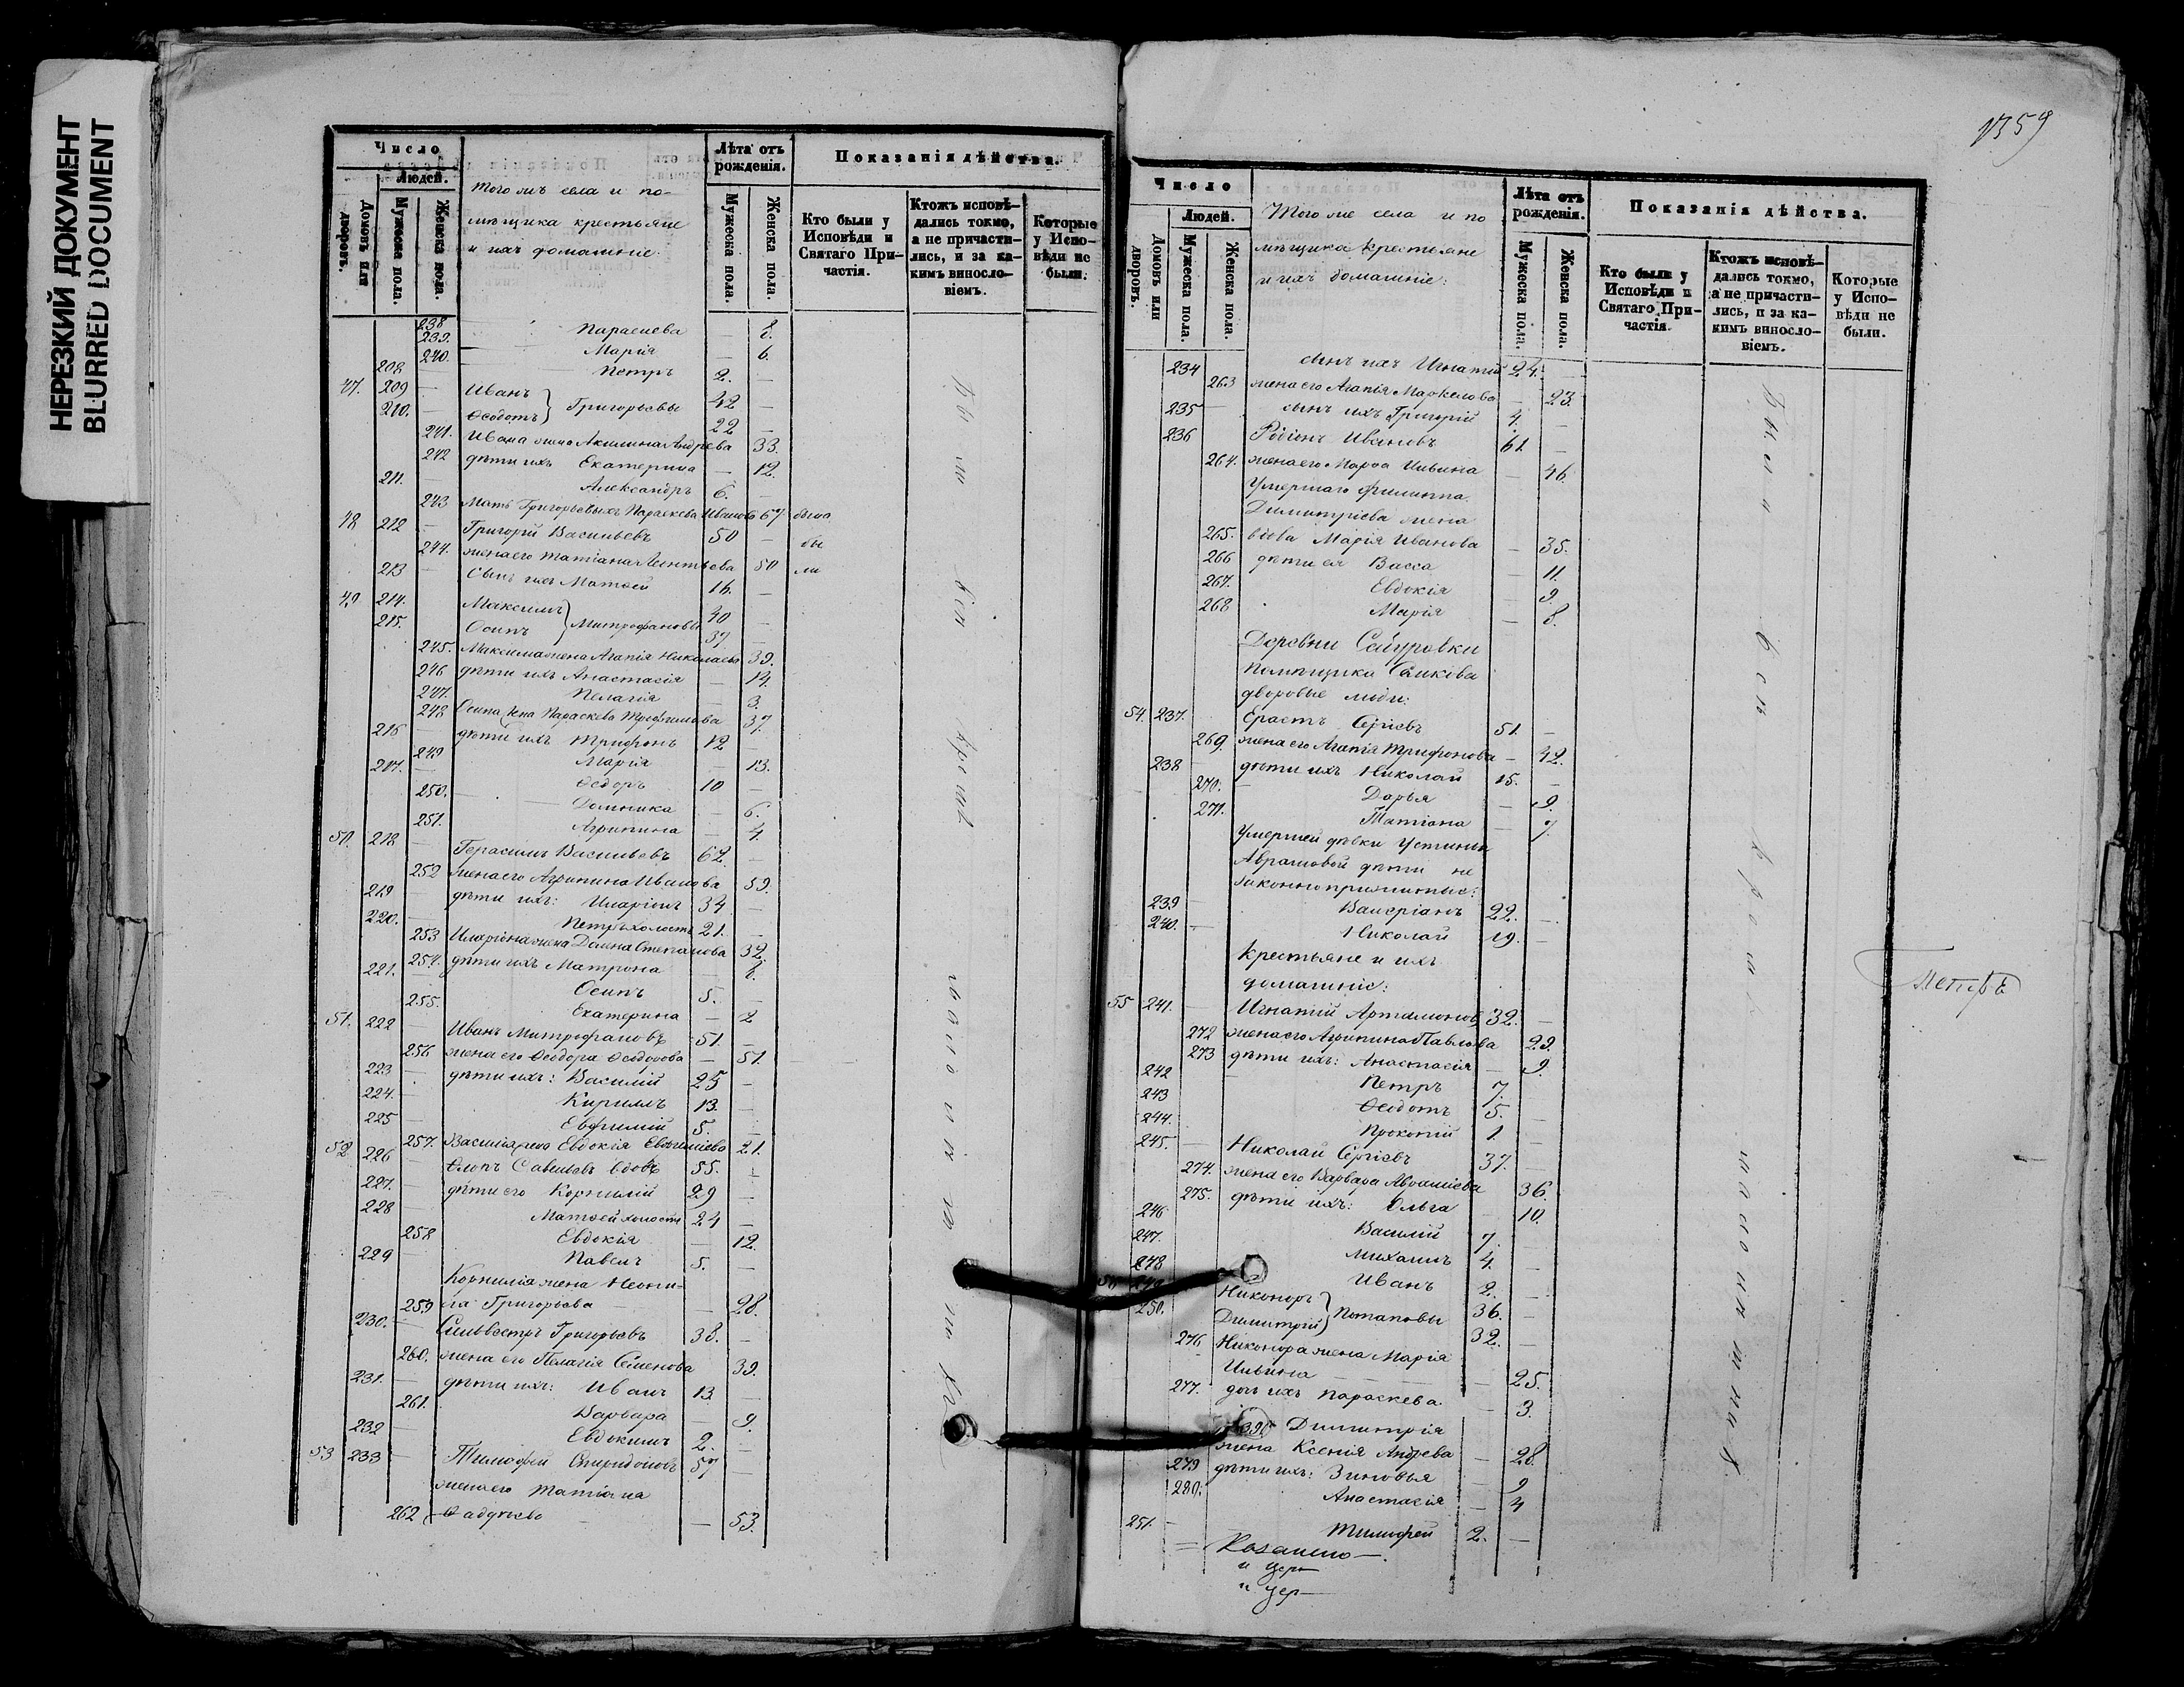 НЕРЕЗКИЙ ДОКУМЕНТ
BLURRED DOCUMENT
Число
Людей.
Домовъ или дворовъ.
Мужеска пола.
Женска пола.
Того жъ села и по-
мѣщика крестьяне
и ихъ домашніе:
Лѣта отъ рожденія.
Мужеска пола.
Женска пола.
Показанія дѣйства.
Кто были у Исповѣди и Святаго При-частія.
Ктожъ исповѣ-дались токмо, а не причасти-лись, и за ка-кимъ виносло-віемъ.
Которые у Испо-вѣди не были.
238
239. Параскева — 8.
240. Марія — 6.
208 Петръ 2. —
47. 209 Иванъ 42 —
210. Ѳеодотъ } Григорьевы 22 —
241. Ивана жена Акилина Андреева 33.
242 дѣти ихъ Екатерина — 12.
211. Александръ 6. —
243 Мать Григорьевыхъ Параскева Иванова 67 была
48 212 Григорій Васильевъ 50 — бы
244. жена его Татіана Леонтьева 50 ли
213 Сынъ ихъ Матѳей 16. —
49 214. Максимъ 40 —
215. Осипъ } Митрофановы 37 —
245. Максима жена Агапія Николаева 39.
246 дѣти ихъ Анастасія — 14.
247. Пелагія — 3.
248 Осипа жена Параскева Трофимова 37.
216 дѣти ихъ Трифонъ 12 —
249 Марія — 13.
217. Ѳедоръ 10 —
250. Домника — 6.
251. Агрипина — 4.
50. 218 Герасимъ Васильевъ 62. —
252 жена его Агрипина Иванова 59.
219 дѣти ихъ: Иларіонъ 34 —
220. Петръ холостъ 21. —
253 Иларіона жена Домна Степанова 32.
254. дѣти ихъ Матрона — 8.
221. Осипъ 5. —
255. Екатерина — 2
51. 222 Иванъ Митрофановъ 51. —
256 жена его Ѳеодора Ѳеодорова — 51.
223 дѣти ихъ: Василій 25 —
224. Кирилъ 13. —
225 Евфимій 5. —
257. Василія жена Евдокія Евфиміева 21.
52. 226 Савельевъ вдовъ 55. —
227. дѣти его Корнилій 29 —
228 Матѳей холостъ 24 —
258 Евдокія — 12.
229 Павелъ 5. —
Корнилія жена Неони-
259 ла Григорьева — 28.
230. Сильвестръ Григорьевъ 38. —
260. жена его Пелагія Семенова 39.
231. дѣти ихъ: Иванъ 13. —
261. Варвара — 9.
232 Евдокимъ 2. —
53 233 Тимофей Спиридоновъ 57 —
жена его Татіана
262 Фадѣева — 53.
1359
Число
Людей.
Домовъ или дворовъ.
Мужеска пола.
Женска пола.
Того же села и по
мѣщика крестьяне
и ихъ домашніе:
Лѣта отъ рожденія.
Мужеска пола.
Женска пола.
Показанія дѣйства.
Кто были у Исповѣди и Святаго При-частія.
Ктожъ исповѣ-дались токмо, а не причасти-лись, и за ка-кимъ виносло-віемъ.
Которые у Испо-вѣди не были.
234 сынъ ихъ Игнатій 24. —
263 жена его Агапія Маркелова — 23.
235 сынъ ихъ Григорій 4. —
236 Родіонъ Ивановъ 61. —
264. жена его Марѳа Ильина — 46.
Умершаго Филиппа
Димитріева жена
265. вдова Марія Иванова — 35.
266 дѣти ея Васса — 11.
267. Евдокія — 9.
268 Марія — 8.
Деревни
помѣщика
дворовые люди:
54. 237. Ерастъ Сергіевъ 51. —
269. жена его Агапія Трифонова — 42.
238 дѣти ихъ Николай 15. —
270. Дарья — 9.
271. Татіана — 7.
Умершей дѣвки Устиньи
Абрамовой дѣти не
законно прижитые:
239 Валеріанъ 22. —
240. Николай 19. —
Крестьяне и ихъ
домашніе:
55 241. Игнатій Артамоновъ 32. —
272 жена его Агрипина Павлова 29.
273 дѣти ихъ: Анастасія — 9.
242 Петръ 7. —
243 Ѳеодотъ 5. —
244. Прокопій 1. —
245. Николай Сергіевъ 37. —
274. жена его Варвара Авраміева 36.
275. дѣти ихъ: Ольга — 10.
246 Василій 7. —
247. Михаилъ 4. —
248 Иванъ 2. —
56 249 Никоноръ 36. —
250. Димитрій } Потаповы 32. —
276 Никонора жена Марія
Ильина — 25.
277. дочь ихъ Параскева — 3.
Димитрія
жена Ксенія Андреева — 28.
279 дѣти ихъ: Зиновья — 9
280. Анастасія — 4
251. Тимофей 2. —